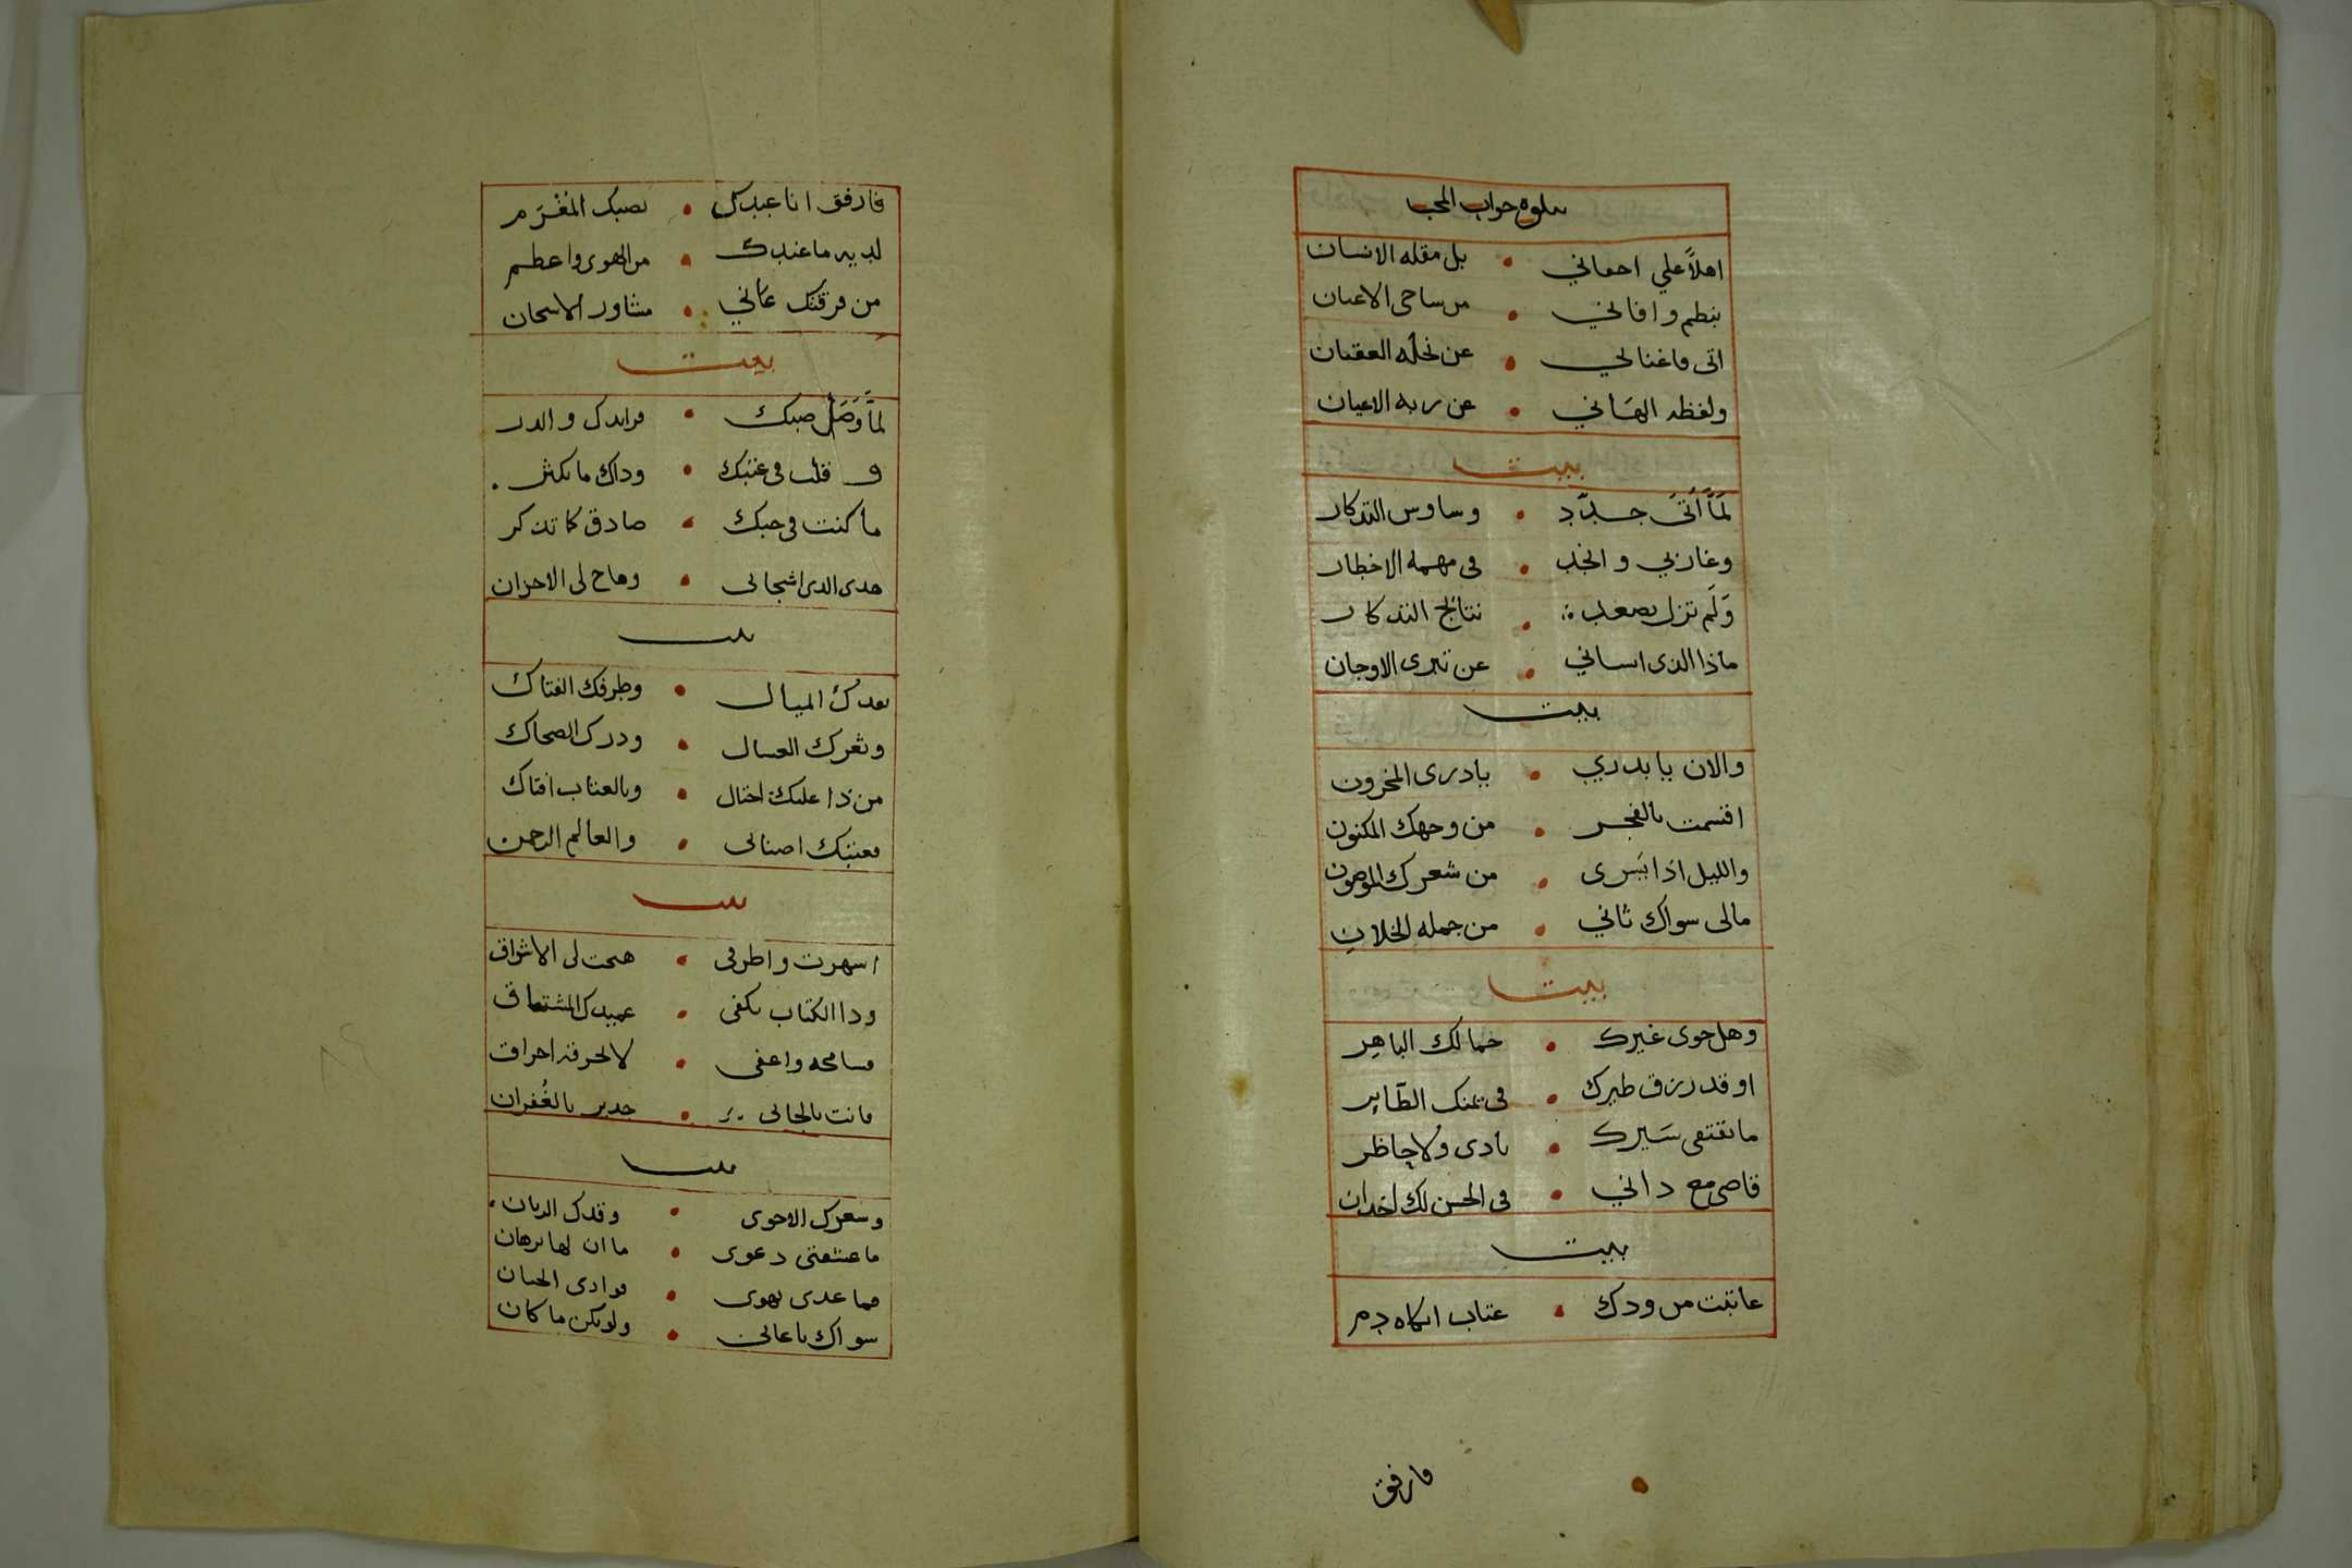 يتلوه جواب المحب
اهلاً علي احفاني • بل مقله الانسان
بنظم وافاني • من ساحى الاعيان
اتى فاغنالي • عن نحله العقيان
ولفظه الهاني • عن ربه الاعيان
بيت
لمَّا أتَى جدّد • وساوس التدكار
وغار بي والخد • في مهمه الاخطار
وَلَم تزل تصعد • نتائج التدكار
ماذا الذي انساني • عن تبرى الاوجان
بيت
والان يا بدري • يا درى المخزون
اقسمت بالفجر • من وجهك المكنون
والليل اذا يَسرى • من شعرك الموصون
مالى سواك ثاني • من جمله الخلان
بيت
وهل حوى غيرك • جمالك الباهر
او قد رزق طيرك • في يمنك الطّاير
ما يقتفى سَيرك • بادى ولا حاظر
قاصى مع داني • في الحسن لك اخدان
بيت
عاتبت من ودك • عتاب دم
فارفق
فارفق انا عبدك • بصبك المغْرَم
لديه ما عندك • من الهوى واعطم
من فرقتك عاني • مشاور الاشجان
بيت
لمَّا وَصَل صبك • فرايدك والدر
وقلت في عتبك • وداك ما يكثر
ما كنت في حبك • صادق كا تذكر
هدى الدى اشجانى • وهاج لى الاحزان
بيت
بقدك الميال • وطرفك الفتاك
وثغرك العسال • ودرك الضحاك
من ذا عليك احتال • وبالعتاب افتاك
فعتبك اضنالى • والعالم الرحمن
بيت
اسهرت واطرفى • هيجت لى الاشواق
ودا الكتاب يكفى • عبيدك المشتاق
فسامحه واعفى • لا لحرقه احراق
فانت بالجانى • جدير بالغُفران
بيت
وشعرك الاحوى • وقدك الريان
ما عشقتى دعوى • ما ان لها برهان
فما عدى يهوى • فوادى الحيان
سواك يا عانى • ولو يكن ما كان